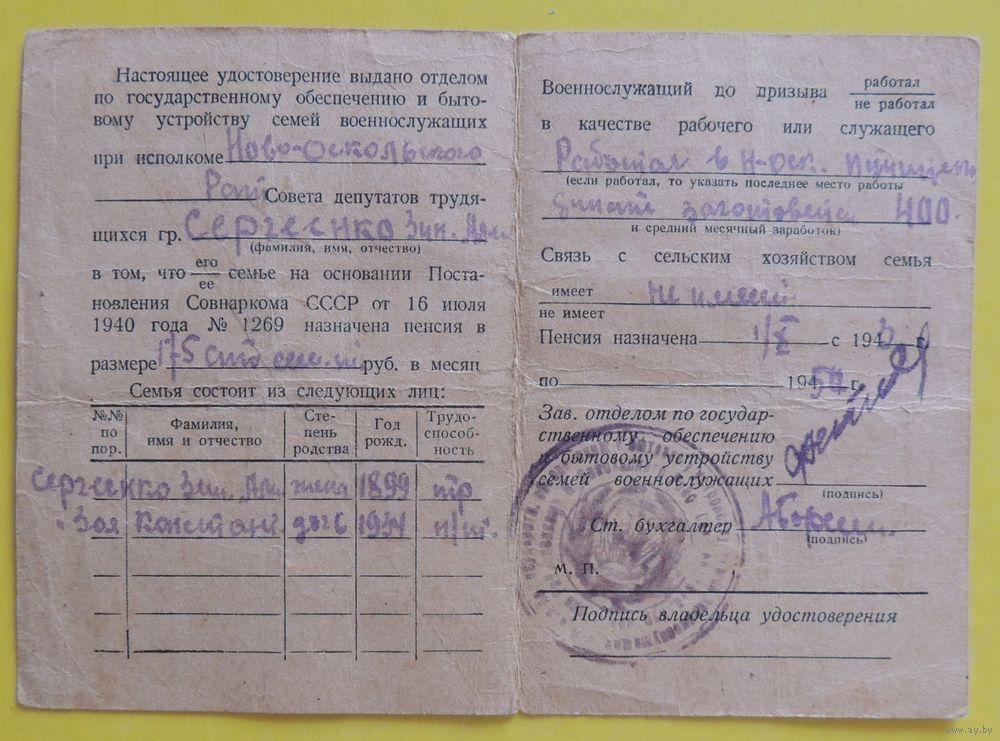 Настоящее удостоверение выдано отделом
по государственному обеспечению и быто-
вому устройству семей военнослужащих
при исполкоме Ново-Оскольского
Рай Совета депутатов трудя-
щихся гр. Сергеенко Зин.
(фамилия, имя, отчество)
в том, что его/ее семье на основании Поста-
новления Совнаркома СССР от 16 июля
1940 года № 1269 назначена пенсия в
размере 175 сто сем. руб. в месяц
Семья состоит из следующих лиц:
№№ по пор. Фамилия, имя и отчество Сте-пень родства Год рожд. Трудо-способ-ность
Сергеенко Зин. жена 1899 тр
" Зоя Констант дочь 1934 н/тр.
Военнослужащий до призыва работал
не работал
в качестве рабочего или служащего
Работал в Н-Оск.
(если работал, то указать последнее место работы
400
и средний месячный заработок)
Связь с сельским хозяйством семья
имеет не имеет
не имеет
Пенсия назначена 1/X с 194 г.
по 194 50 г.
Зав. отделом по государ-
ственному обеспечению
и бытовому устройству
семей военнослужащих
(подпись)
Ст. бухгалтер
(подпись)
М. П.
Подпись владельца удостоверения
www.ay.by